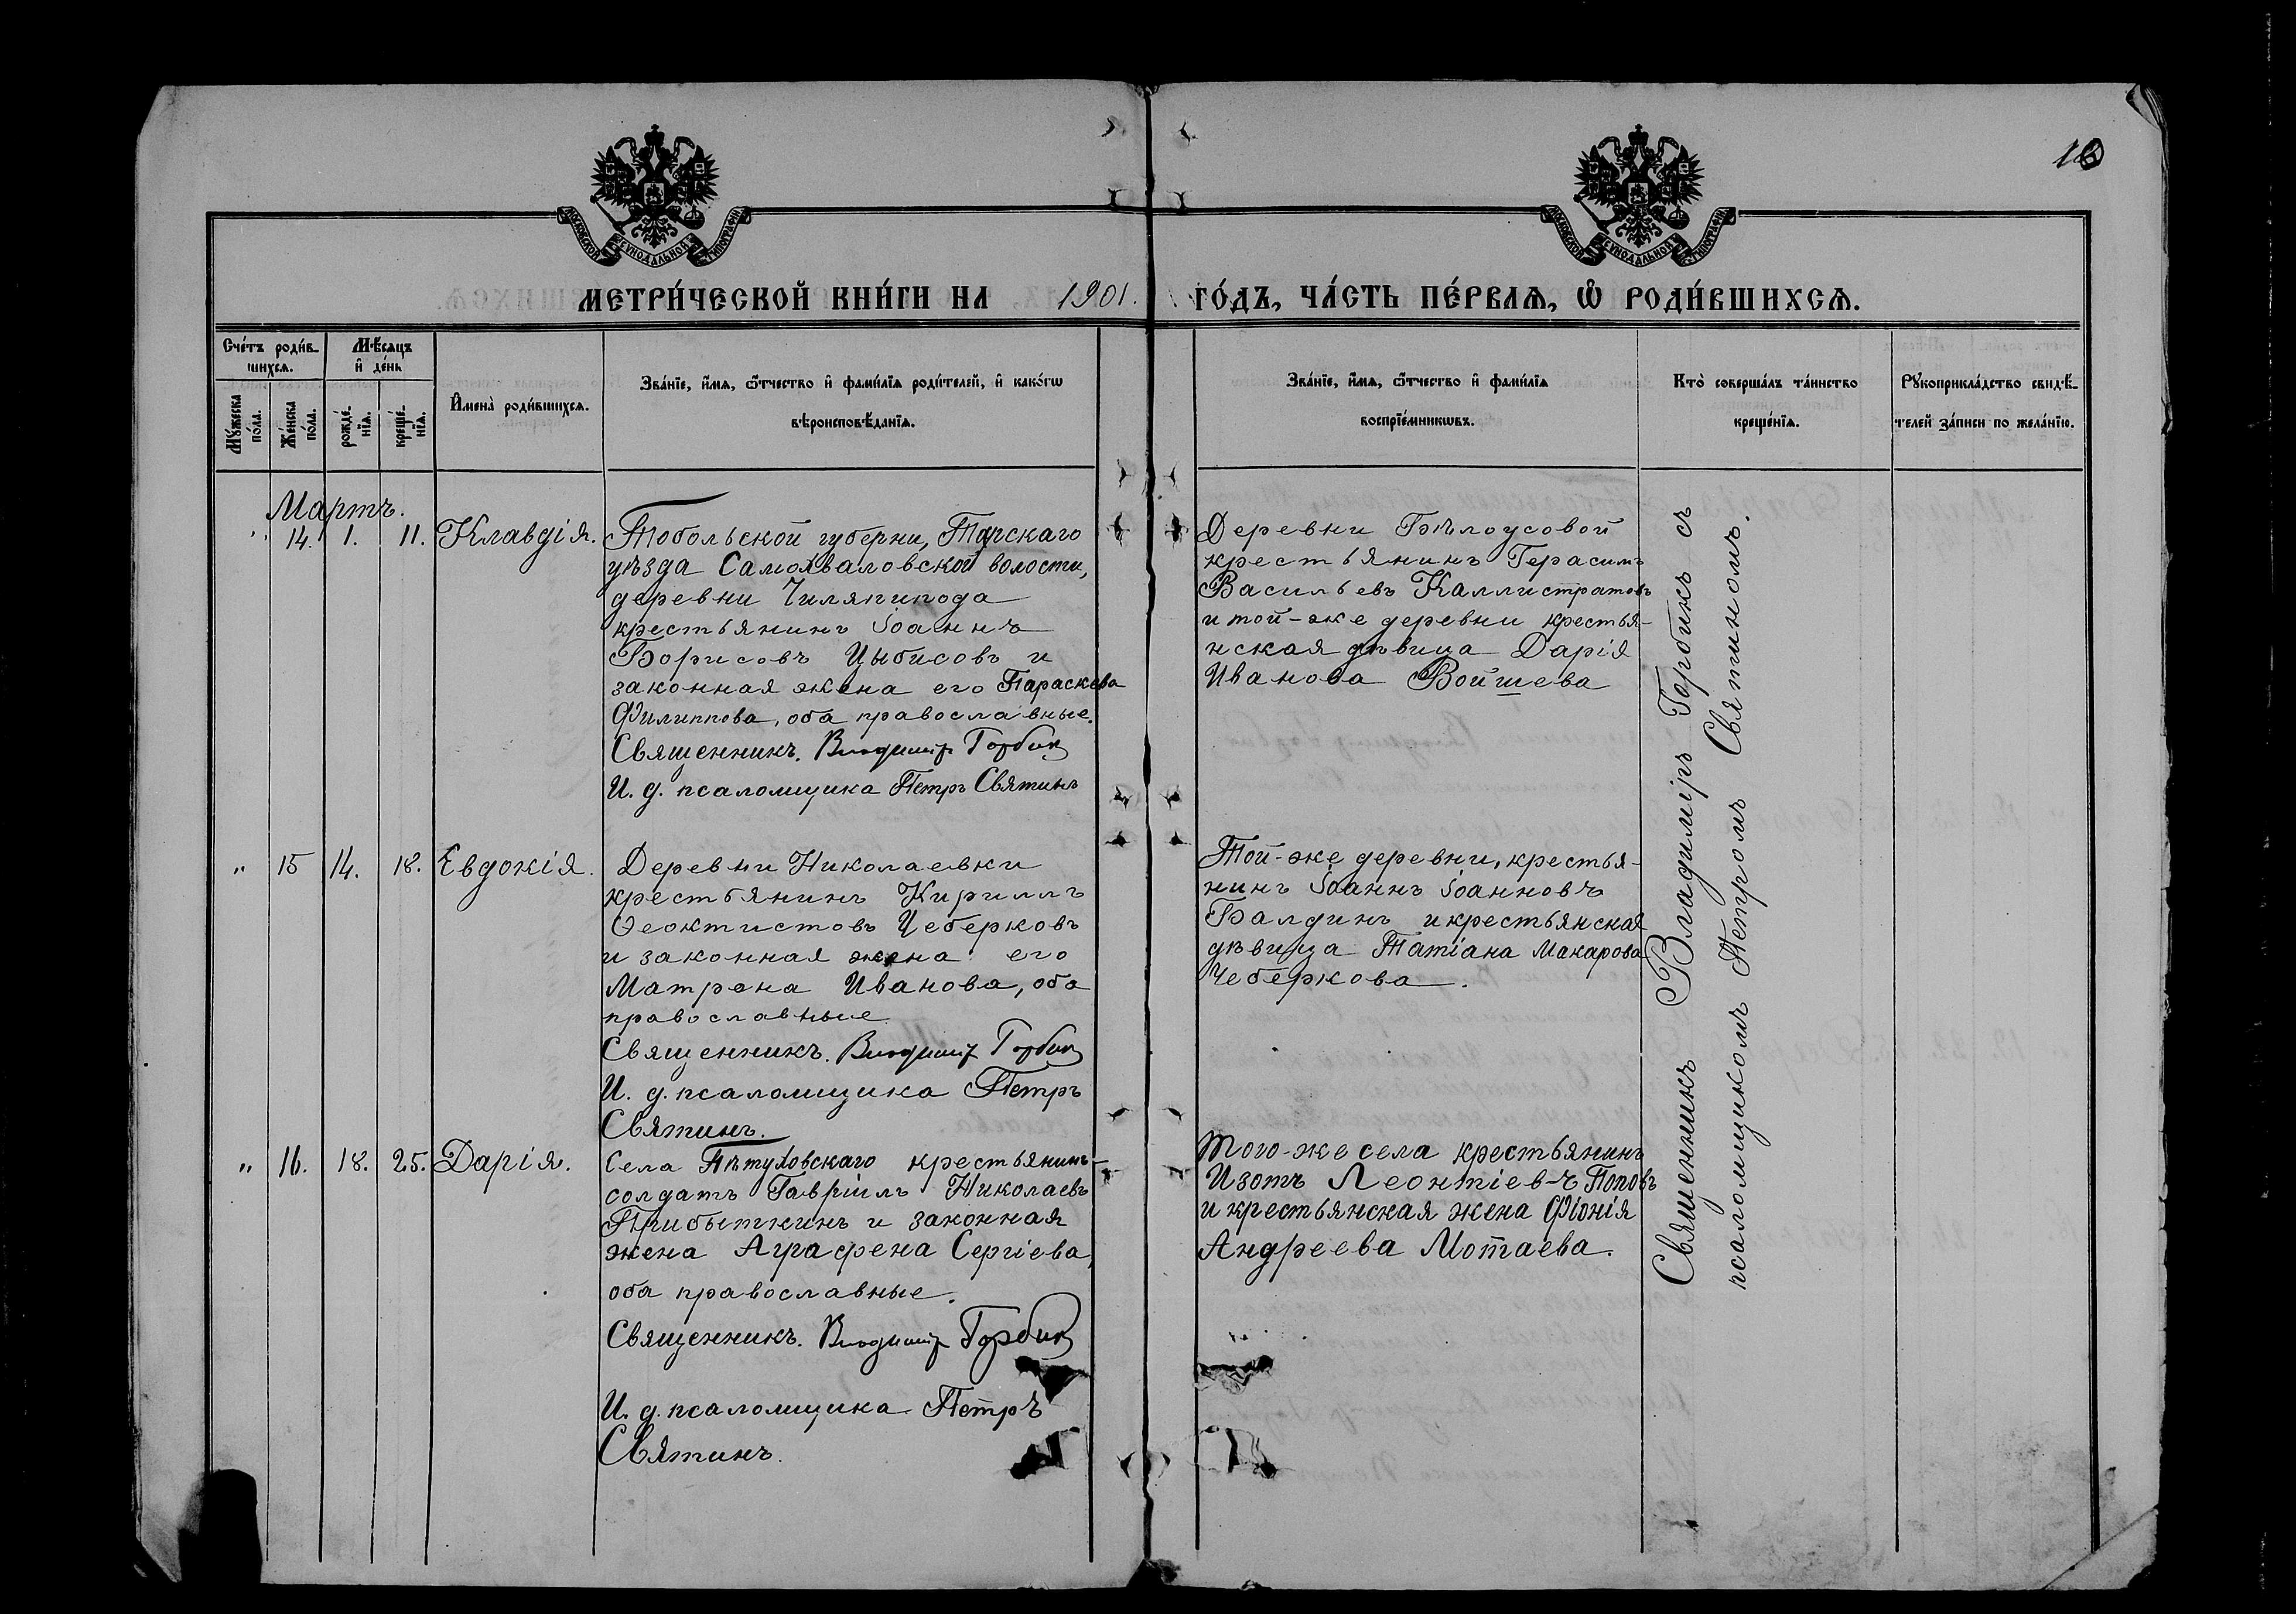 16
МОСКОВСКОЙ СѴНОДАЛЬНОЙ ТИПОГРАФІИ
МОСКОВСКОЙ СѴНОДАЛЬНОЙ ТИПОГРАФІИ
МЕТРИ́ЧЕСКОЙ КНИ́ГИ НА 1901. ГО́ДЪ, ЧА́СТЬ ПЕ́РВАѦ, Ѽ РОДИ́ВШИХСѦ.
Сче́тъ роди́в-
шихсѧ.
Мꙋ́жеска
по́ла.
Же́нска
по́ла.
Мѣ́сѧцъ
и҆ де́нь
рожде́-
нїѧ.
креще́-
нїѧ.
И҆мена̀ роди́вшихсѧ.
Зва́нїе, и҆́мѧ, ѻ҆́тчество и҆ фами́лїѧ роди́телей, и҆ како́гѡ
вѣроисповѣ́данїѧ.
Зва́нїе, и҆́мѧ, ѻ҆́тчество и҆ фами́лїѧ
воспрїе́мникѡвъ.
Кто̀ соверша́лъ та́инство
креще́нїѧ.
Рꙋкоприкла́дство свидѣ́-
телей за́писи по жела́нїю.
Мартъ.
" 14. 1. 11. Клавдія.
Тобольской губерни, Тарскаго
уѣзда Самохваловской волости,
деревни
крестьянинъ Іоаннъ
Борисовъ Цыбисовъ и
законная жена его Параскева
Филиппова, оба православные.
Священникъ. Владиміръ Горбик
И. д. псаломщика Петръ Святинъ
Деревни Бѣлоусовой
крестьянинъ Герасимъ
Васильевъ Каллистратовъ
и той-же деревни крестья-
нская дѣвица Дарія
Иванова Войшева
" 15 14. 18. Евдокія.
Деревни Николаевки
крестьянинъ Кириллъ
Ѳеоктистовъ Чеберковъ
и законная жена его
Матрона Иванова, оба
православные
Священникъ. Владиміръ Горбик
И. д. псаломщика Петръ
Святинъ.
Той-же деревни, крестья-
нинъ Іоаннъ Іоанновъ
Балдинъ и крестьянская
дѣвица Татіана Макарова
Чеберкова.
" 16. 18. 25. Дарія.
Села Пѣтуховскаго крестьянинъ
солдатъ Гавріилъ Николаевъ
Прибыткинъ и законная
жена Аграфена Сергіева,
оба православные.
Священникъ. Владиміръ Горбик
И. д. псаломщика Петръ
Святинъ.
Того-же села крестьянинъ
Изотъ Леонтіевъ Поповъ
и крестьянская жена Фіонія
Андреева Мотаева.
Священникъ Владиміръ Горбикъ съ
псаломщикомъ Петромъ Святиномъ.